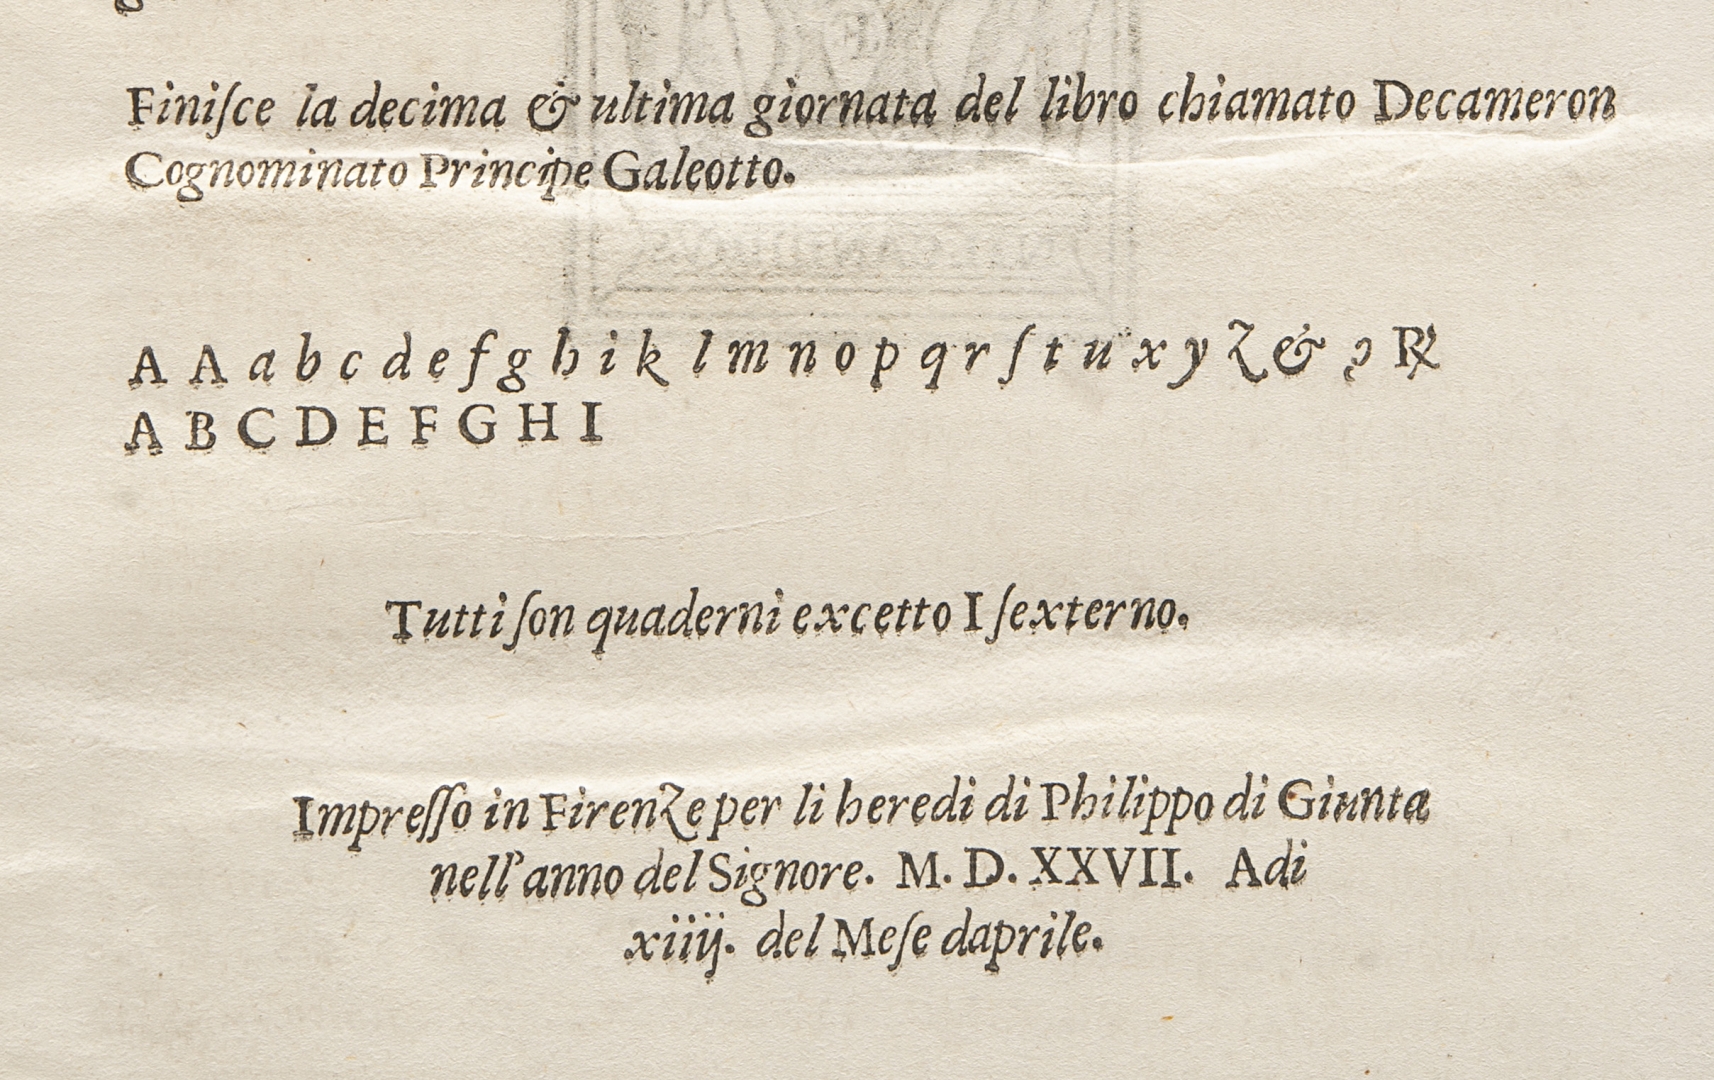 Finiſce la decima & ultima giornata del libro chiamato Decameron
Cognominato Principe Galeotto.
A A a b c d e f g h i k l m n o p q r ſ t u x y z & ꝯ ℞
A B C D E F G H I
Tutti ſon quaderni excetto I ſexterno.
Impreſſo in Firenze per li heredi di Philippo di Giunta
nell'anno del Signore. M. D. XXVII. Adi
xiiij. del Meſe daprile.